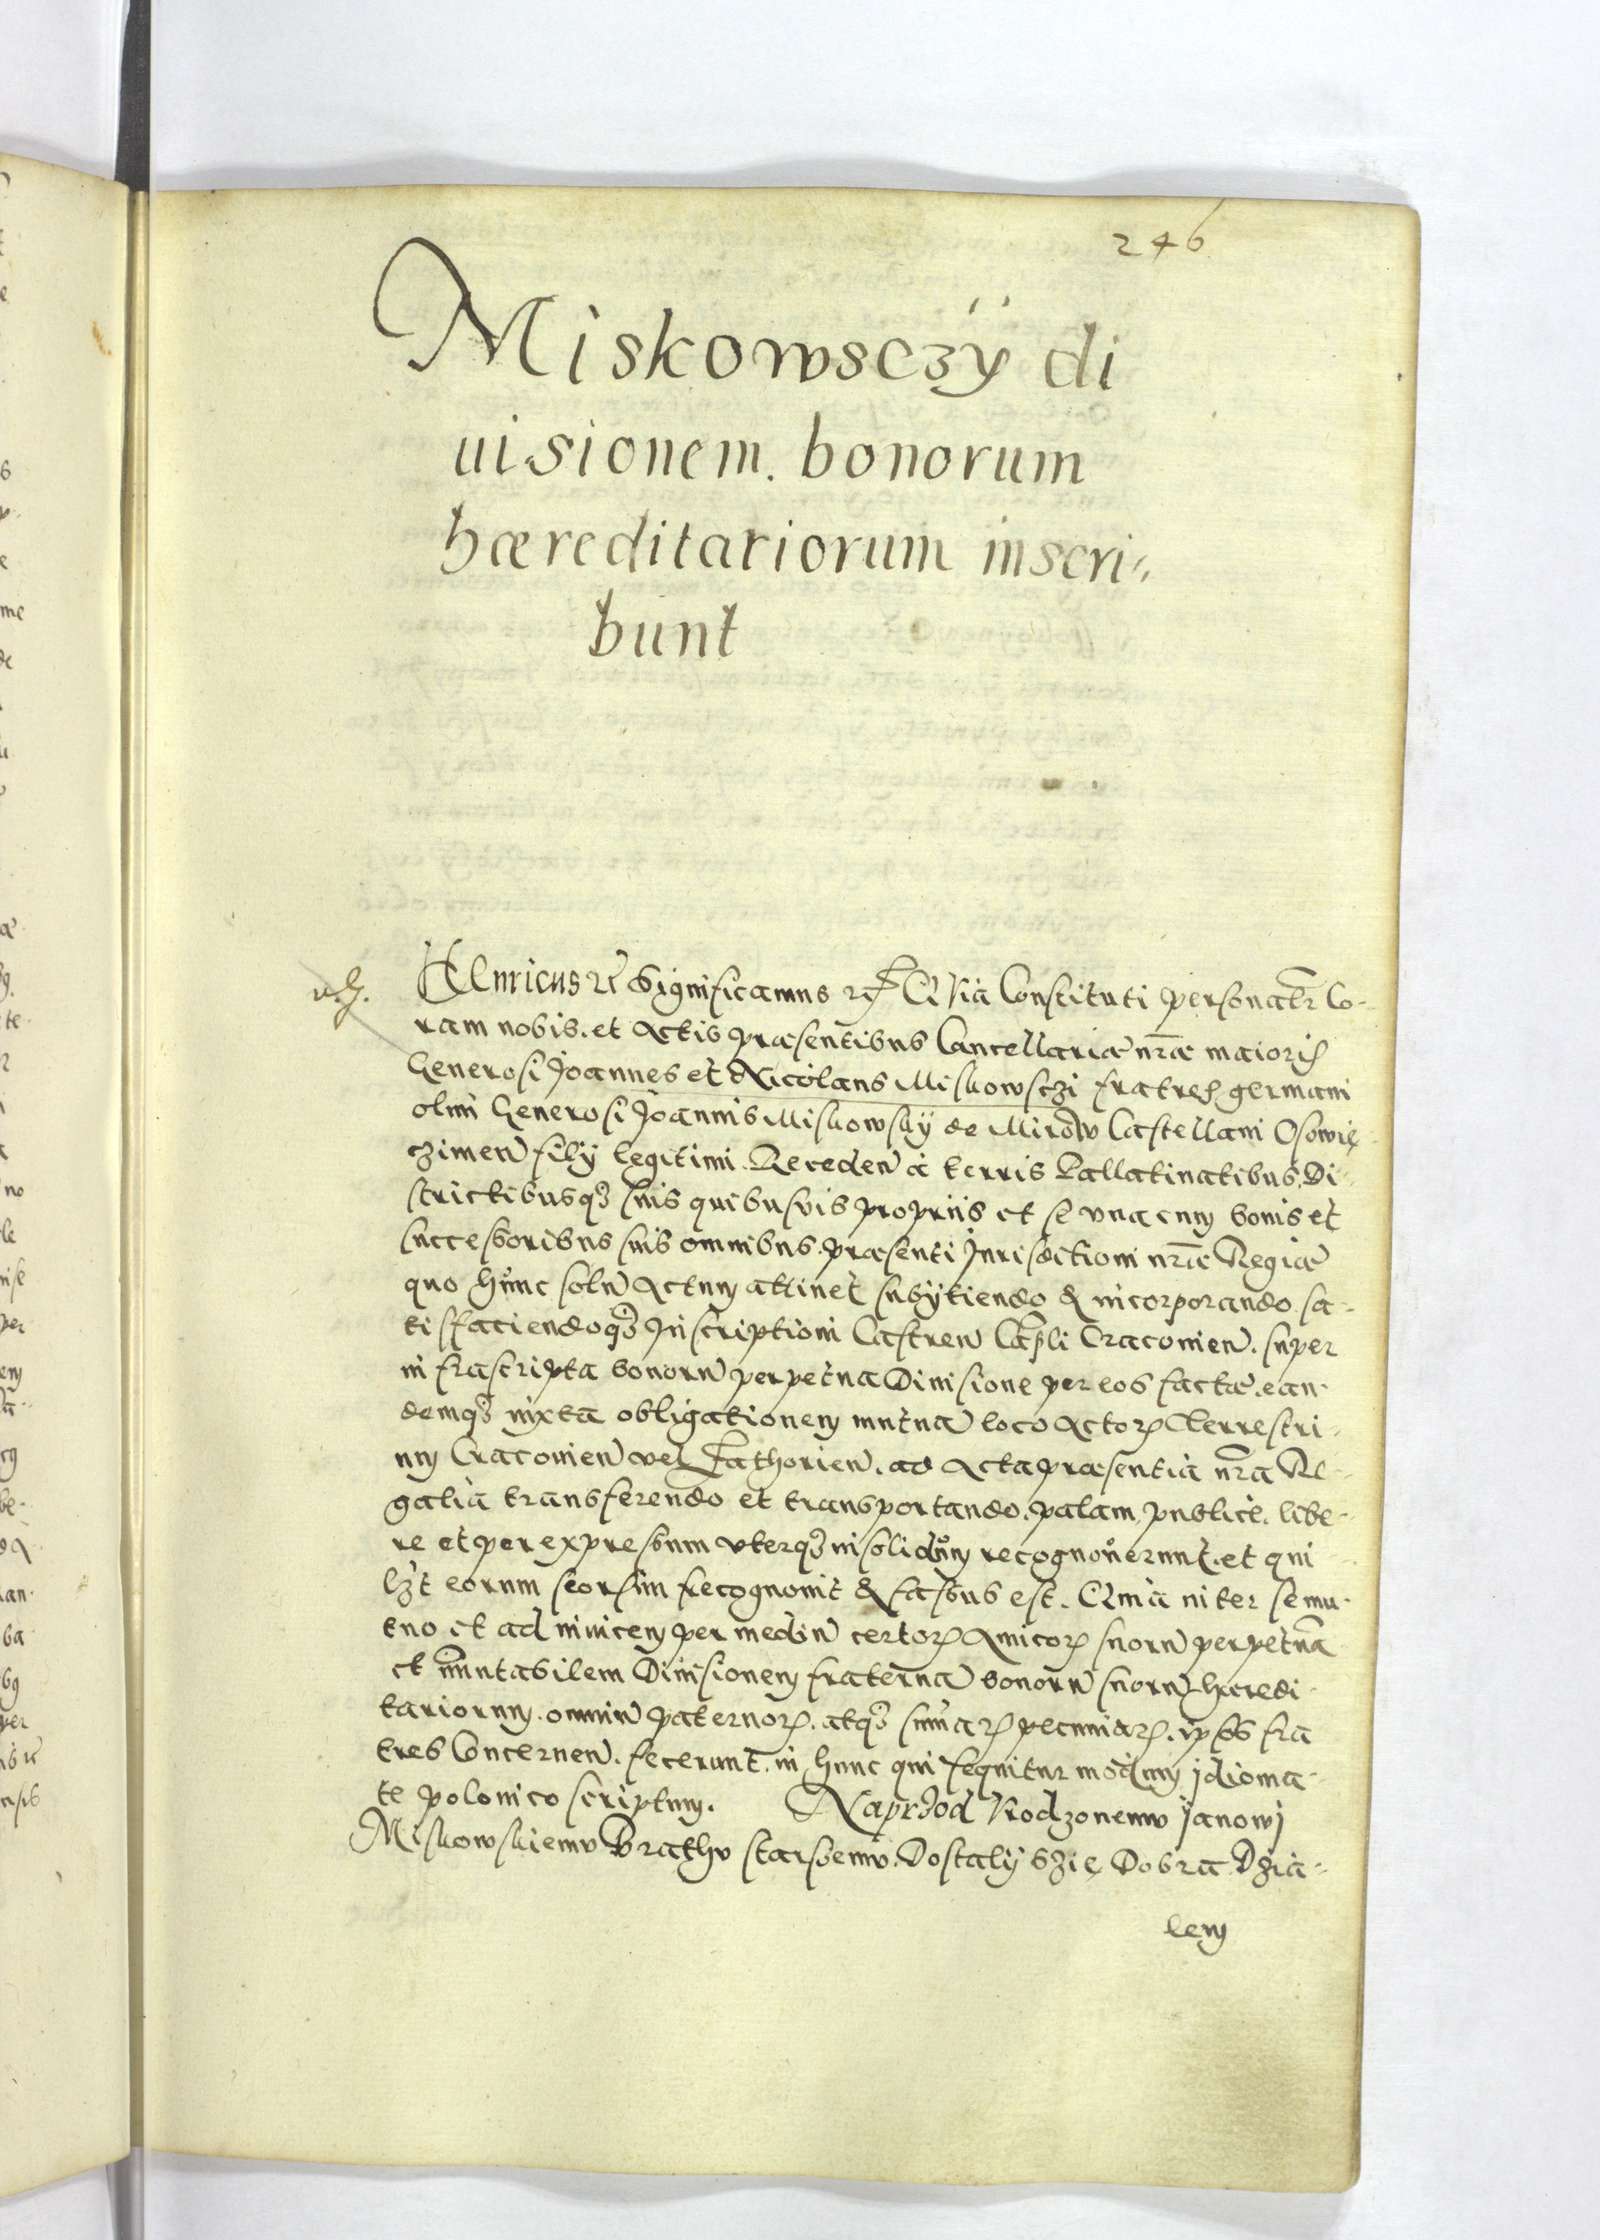 246
Miskowsczÿ di
uisionem. bonorum
hæreditariorum inscri„
bunt
HEnricus etc Significamus etc QVia Constituti personalr Co-
ram nobis. et Actis præsentibus Cancellariæ nræ maioris
Generosi Joannes et Nicolaus Miskowsczi fratres germani
olim Generosi Joannis Miskowskÿ de Mirow Castellani Osowię
czimen filÿ legitimi. Receden à terris Pallatinatibus, Di-
strictibusq3 suis quibusvis proprÿs et se vna cum bonis et
successoribus suis omnibus. præsenti Jurisdictioni nræ Regiæ
quo hunc solu Actum attinet subÿtiendo & incorporando. sa-
tisfaciendoq3 Inscriptioni Castren Capli Cracouien. super
infrascripta bonoru perpetua Diuisione per eos factæ. ean-
demq3 iuxta obligationem mutua loco Actor Terrestri-
um Cracouien vel Zathorien. ad Acta præsentia nra Re-
galia transferendo et transportando. palam, publice. libe-
re et per expressum vterq3 insolidum recognouerunt. et qui
l3t eorum seorsim recognouit & fassus est. Quia inter se mu-
tuo et ad inuicem per mediu certor Amicor suoru perpetua
et immutabilem Diuisionem fraterna bonoru suoru hæredi-
tariorum. omniu paternor. atq3 sumar pecuniar. ipsos fra
tres Concernen. fecerunt. in hunc qui sequitur modum jdioma-
te polonico scriptum. Naprzod Vrodzonemv Janowj
Miskowskiemv Brathv starsemv. Dostalÿ szię Dobra Dzia-
lem